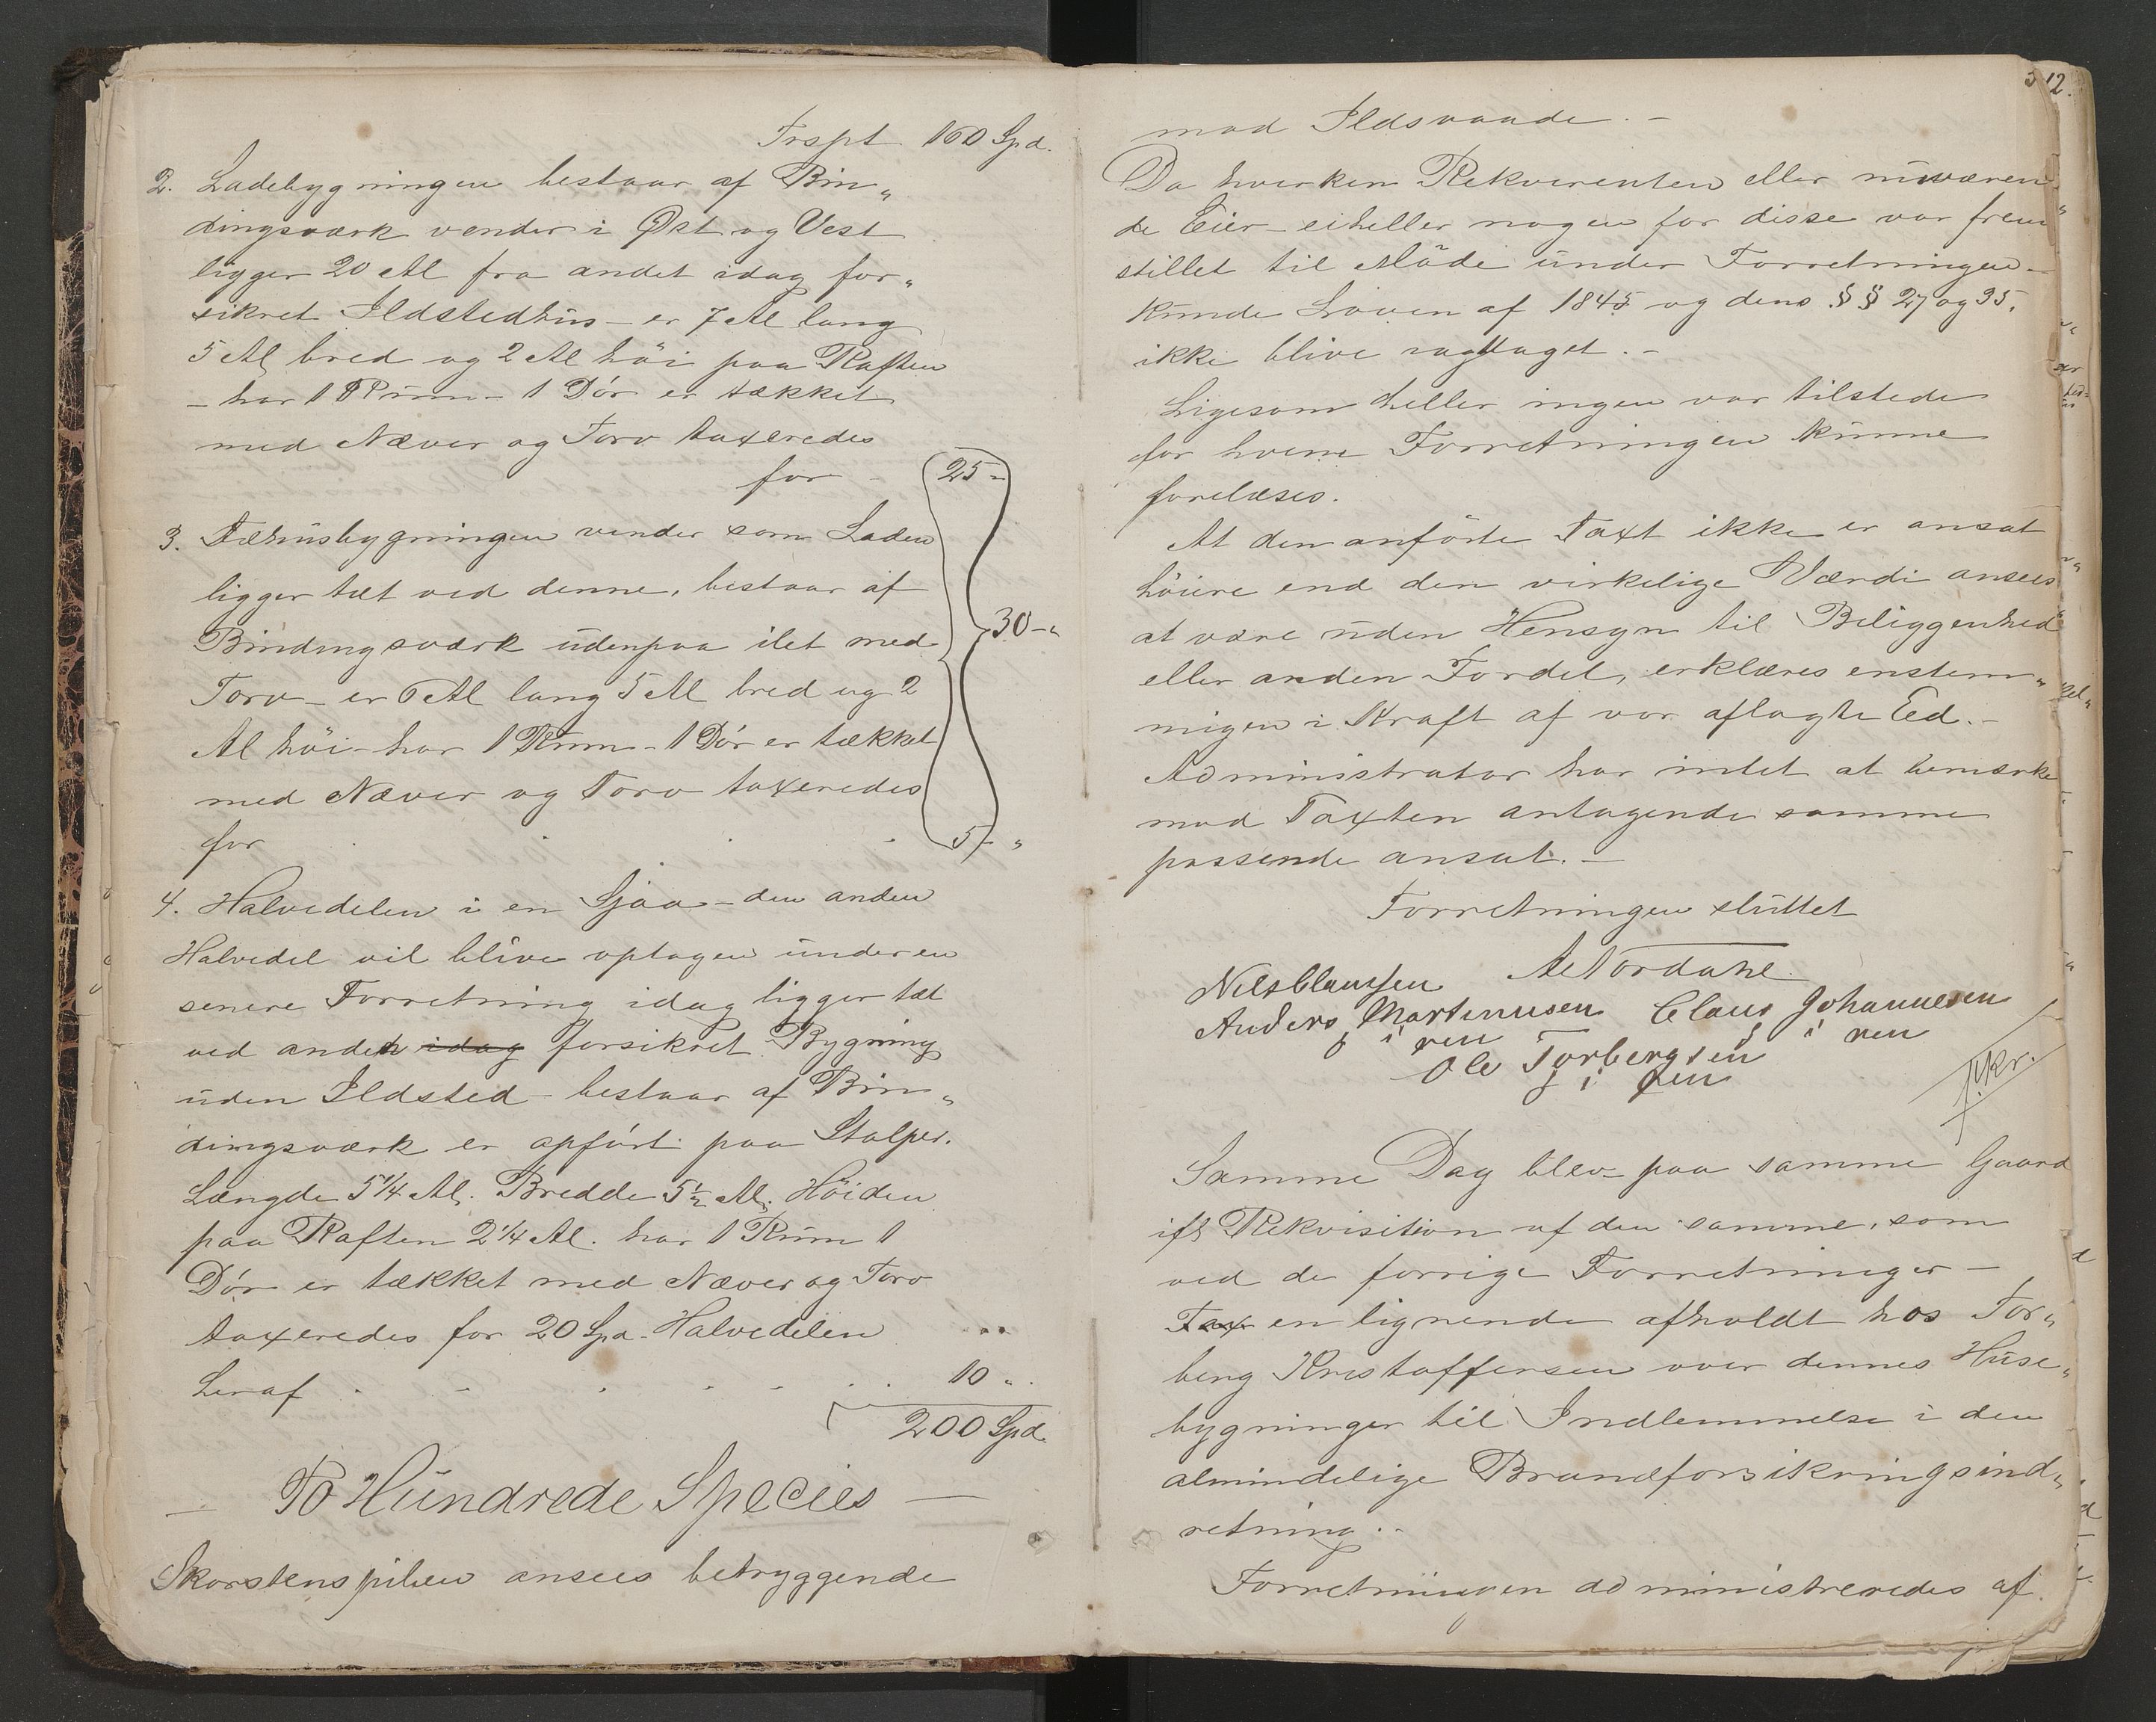 Trspt 160 Spd.
2. Ladebygningen bestaar af Bin„
dingsværk vender i Øst og Vest
ligger 20 Al fra andet idag for„
sikret Ildstedhus – er 7 Al lang
5 Al bred og 2 Al höi paa Raften
– har 1 Rum – 1 Dör er tækket
med Næver og Torv taxeredes
for – 25 –
3. Fæhusbygningen vender som Laden
ligger tæt ved denne, bestaar af
Bindingsværk udenpaa ilet med
30 – „
Torv – er 6 Al lang 5 Al bred og 2
Al höi – har 1 Rum – 1 Dör er tækket
med Næver og Torv taxeredes
for . . . 5 – „
4. Halvedelen i en Sjaa – den anden
Halvedel vil blive optagen under en
senere Forretning idag ligger tæt
ved anden idag forsikret Bygning
uden Ildsted – bestaar af Bin„
dingsværk er opfört paa Stolper.
Længde 5 1/4 Al. Bredde 5 1/2 Al. Höiden
paa Raften 2 1/4 Al. har 1 Rum 1
Dör er tækket med Næver og Torv
taxeredes for 20 Spd. Halvedelen
heraf . . . . . . 10 „ .
200 Spd.
– To Hundrede Species –
Skorstenspiben ansees betryggende
312.
mod Ildsvaade. –
Da hverken Rekvirenten eller nuværen„
de Eier – eiheller nogen for disse var frem„
stillet til Möde under Forretningen –
kunde Loven af 1845 og dens §§ 27 og 35.
ikke blive iagttaget. –
Ligesom heller ingen var tilstede
for hvem Forretningen kunne
forelæses.
At den anförte Taxt ikke er ansat
höiere end den virkelige Værdi ansees
at være uden Hensyn til Beliggenhed
eller anden Fordel, erklæres enstem„
migen i Kraft af vor aflagte Eed. –
Administrator har intet at bemærke
mod Taxten antagende samme
passende ansat. –
Forretningen sluttet
A Nordahl
Nils Claussen
Anders Martinusen Claus Johannesen
i Pen i Pen
Ole Torbergsen
i Pen
f.kr.
Samme Dag blev paa samme Gaard
ifl Rekvisition af den samme, som
ved de forrige Forretninger –
Tax en lignende afholdt hos Tor„
berg Kristoffersen over dennes Huse„
bygninger til Indlemmelse i den
almindelige Brandforsikringsind„
retning. –
Forretningen administreredes af